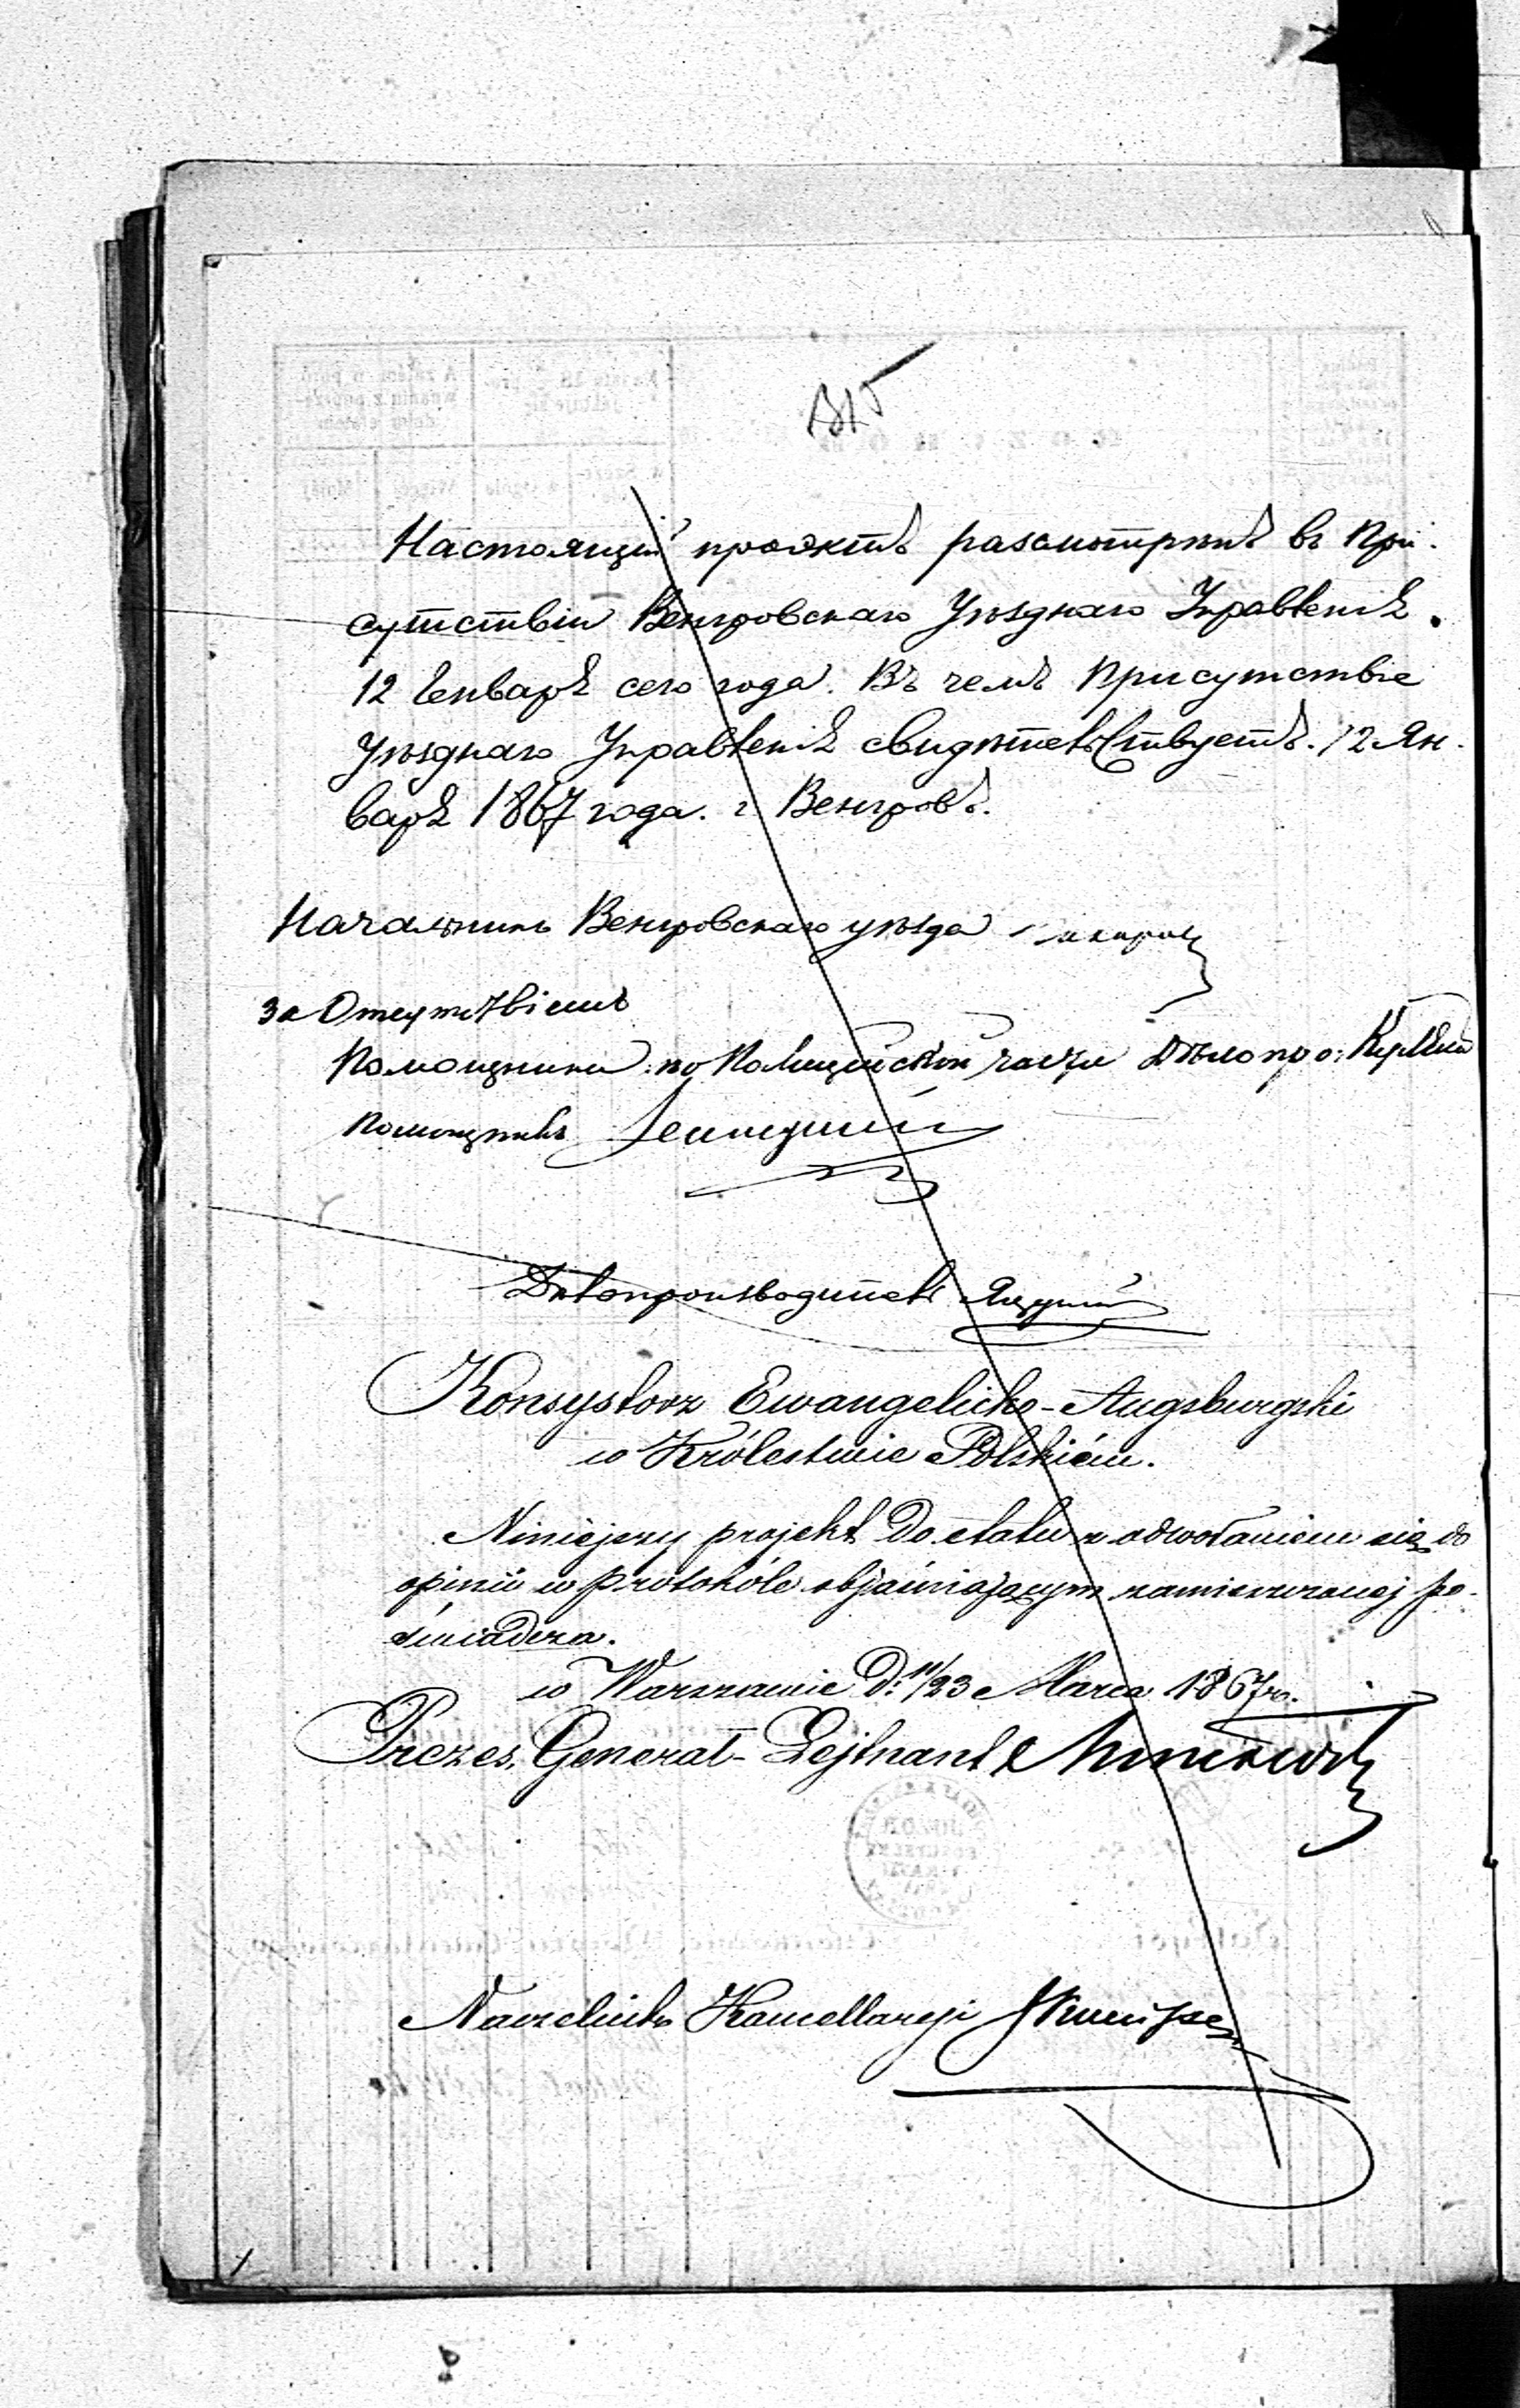 315
Настоящій проэктъ разсмотрѣнъ въ При-
сутствіи Венгровскаго Уѣзднаго Управленія.
12 Генваря сего года. Въ чемъ Присутствіе
Уѣзднаго Управленія свидѣтельствуетъ. 12 Ян-
варя 1867 года. г. Венгровъ.
Начальникъ Венгровскаго уѣзда
за Отсутствіемъ
Помощника по Полицейской части Дѣлопро:
Помощникъ
Дѣлопроизводитель
Konsystorz Ewangelicko-Augsburgski
w Królestwie Polskiém.
Niniejszy projekt do etatu z odwołaniem się do
opinii w protokóle objaśniającym zamieszczonej po-
świadcza.
w Warszawie d: 11/23 Marca 1867 r.
Prezes, Generał-Lejtnant
Naczelnik Kancellaryi